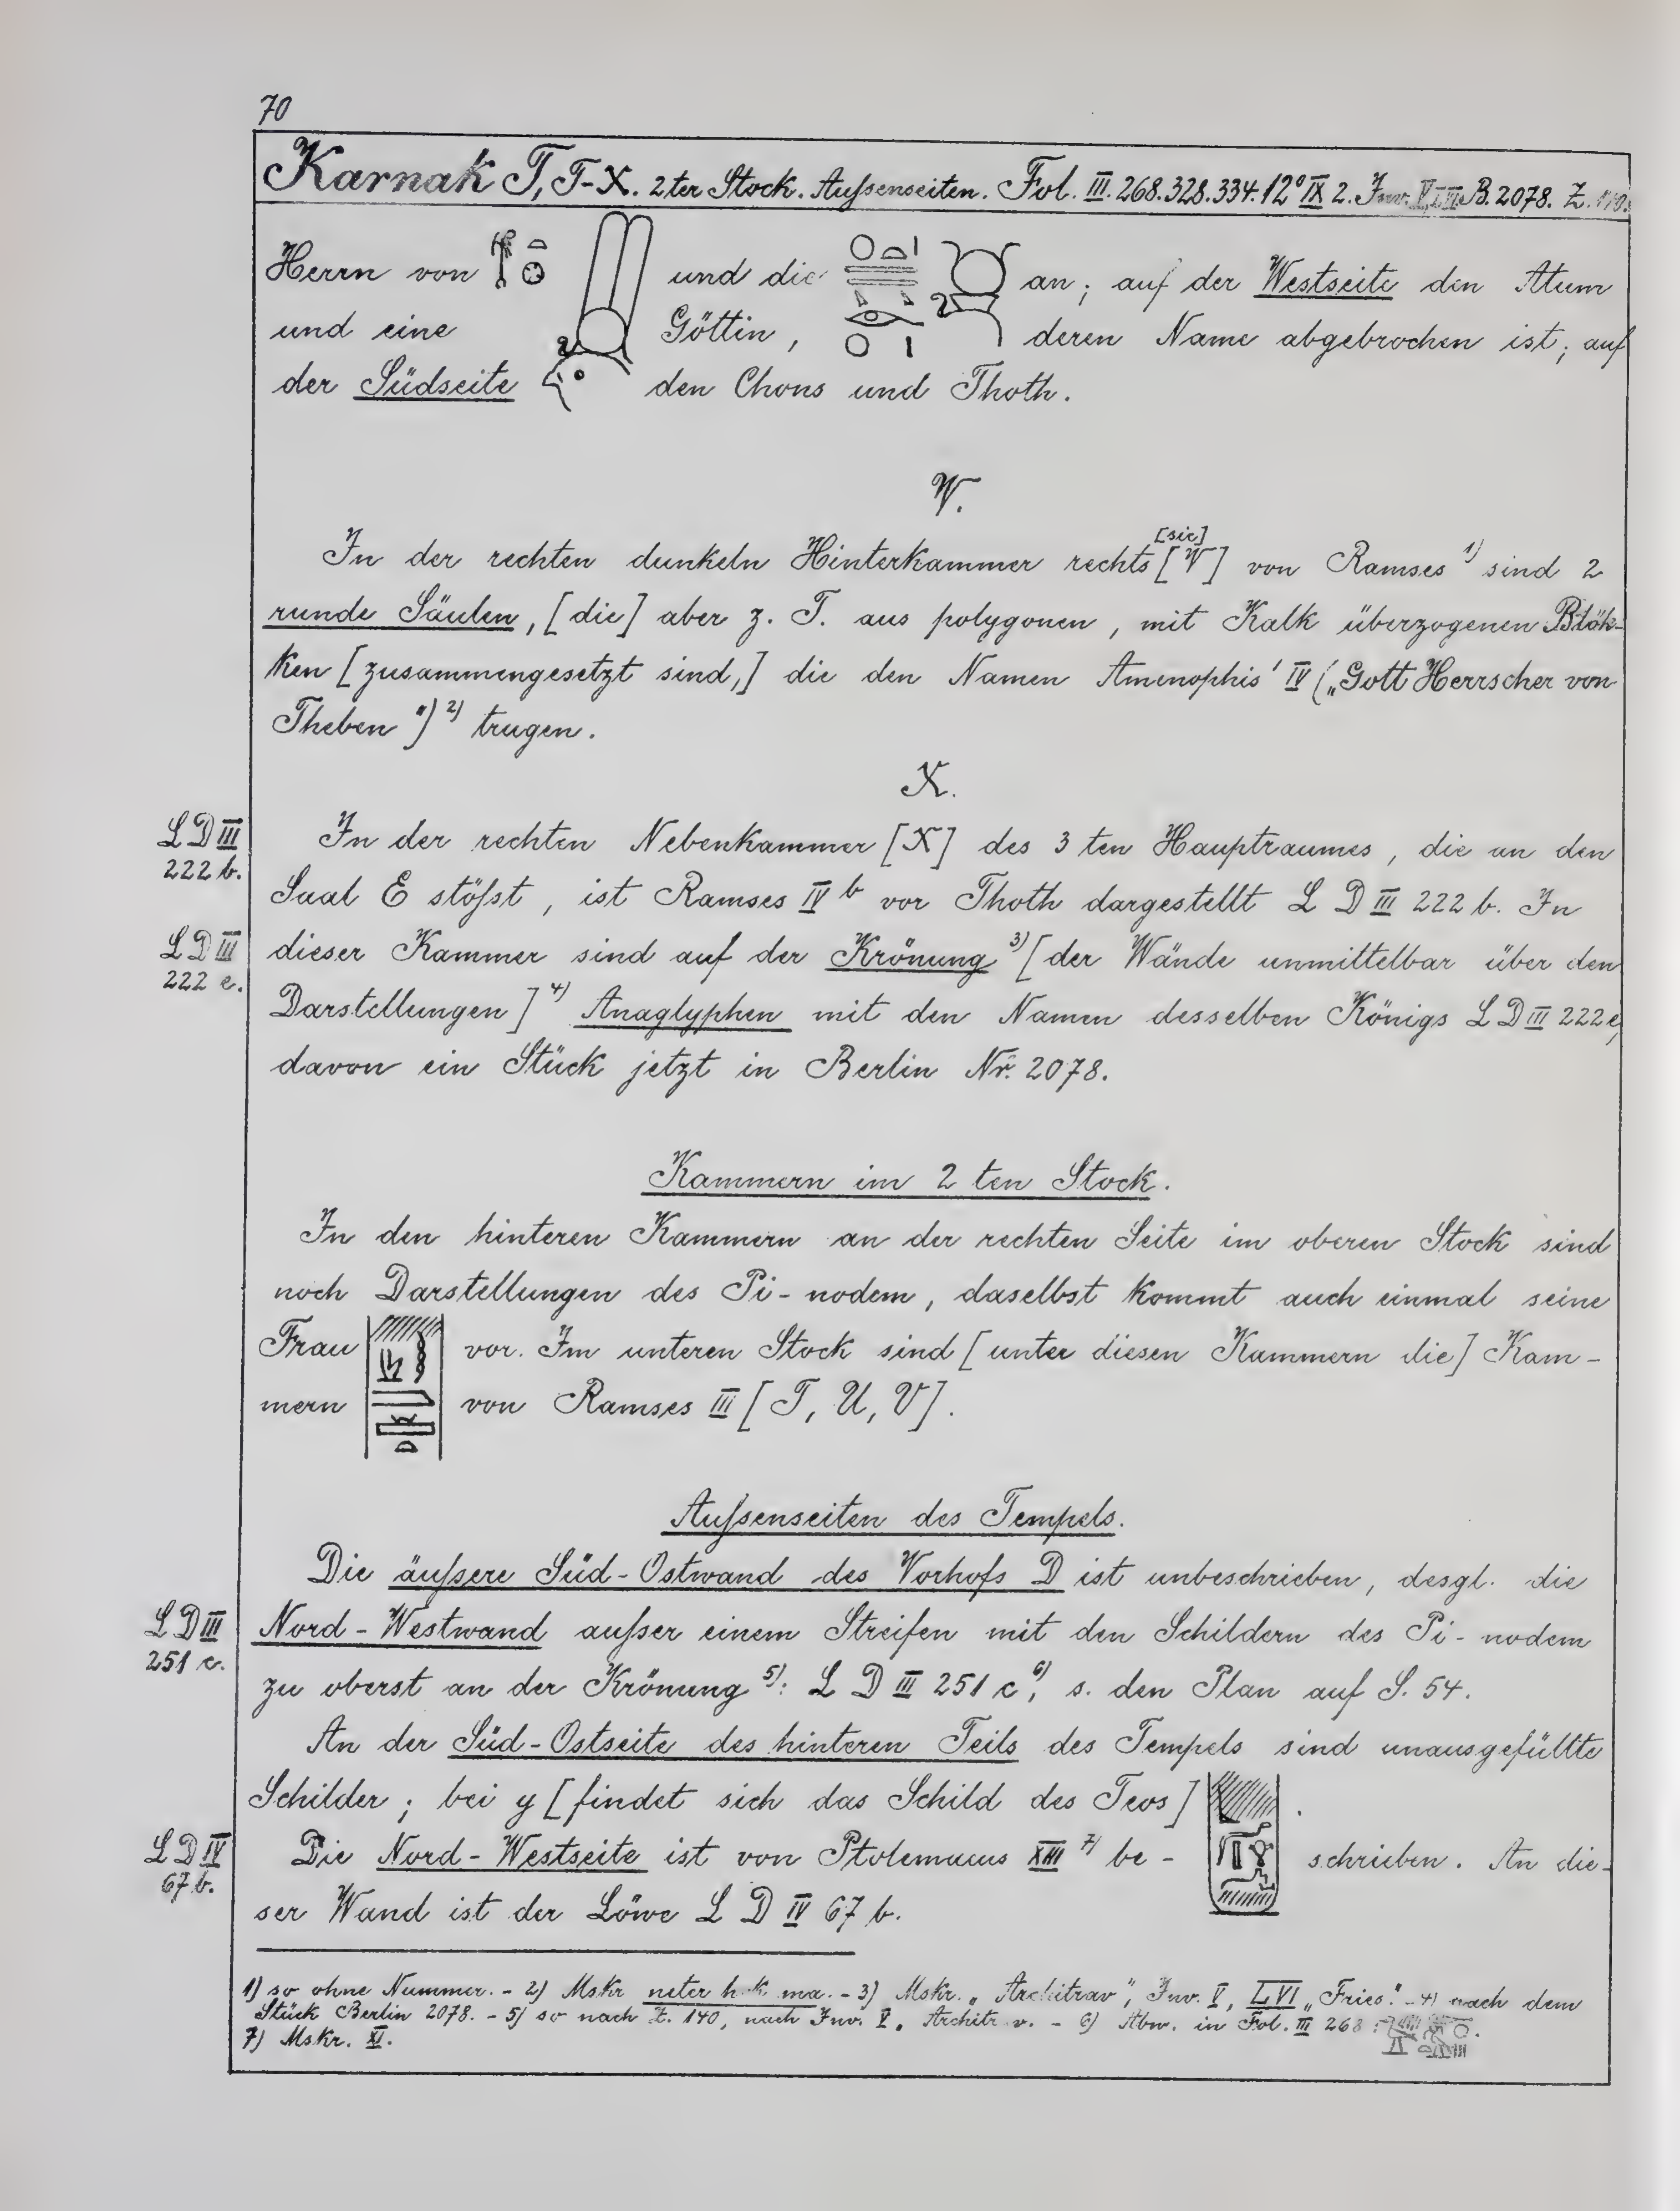 70
Karnak T, T-X. 2ter Stock. Aufsenseiten. Fol. III. 268.328.334.12° IX 2. Inv. B. 2078. Z.
Herrn von und die an; auf der Westseite den Atum
und eine Göttin, deren Name abgebrochen ist; auf
der Südseite den Chons und Thoth.
W.
[sic]
In der rechten dunkeln Hinterkammer rechts [W] von Ramses 1) sind 2
runde Säulen, [die] aber z. T. aus polygonen, mit Kalk überzogenen Blök-
ken [zusammengesetzt sind,] die den Namen Amenophis' IV („Gott Herrscher von
Theben") 2) trugen.
X.
LD III
222 b.
In der rechten Nebenkammer [X] des 3 ten Hauptraumes, die an den
Saal E stöfst, ist Ramses IV b vor Thoth dargestellt L D III 222 b. In
LD III
222 e.
dieser Kammer sind auf der Krönung 3) [der Wände unmittelbar über den
Darstellungen] 4) Anaglyphen mit den Namen desselben Königs L D III 222 e,
davon ein Stück jetzt in Berlin Nr. 2078.
Kammern im 2 ten Stock.
In den hinteren Kammern an der rechten Seite im oberen Stock sind
noch Darstellungen des Pi-nodem, daselbst kommt auch einmal seine
Frau vor. Im unteren Stock sind [unter diesen Kammern die] Kam-
mern von Ramses III [T, U, V].
Aufsenseiten des Tempels.
Die äufsere Süd-Ostwand des Vorhofs D ist unbeschrieben, desgl. die
LD III
251 c.
Nord-Westwand aufser einem Streifen mit den Schildern des Pi-nodem
zu oberst an der Krönung 5): L D III 251 c 6), s. den Plan auf S. 54.
An der Süd-Ostseite des hinteren Teils des Tempels sind unausgefüllte
Schilder; bei y [findet sich das Schild des Teos] .
LD IV
67 b.
Die Nord-Westseite ist von Ptolemaeus XIII 7) be- schrieben. An die-
ser Wand ist der Löwe L D IV 67 b.
1) so ohne Nummer. - 2) Mskr neter hak ma. - 3) Mskr. „Architrav", Inv. V, LVI „Fries." - 4) nach dem
Stück Berlin 2078. - 5) so nach Z. 140, nach Inv. V, Architrav. - 6) Abw. in Fol. III 268 : .
7) Mskr. XI.